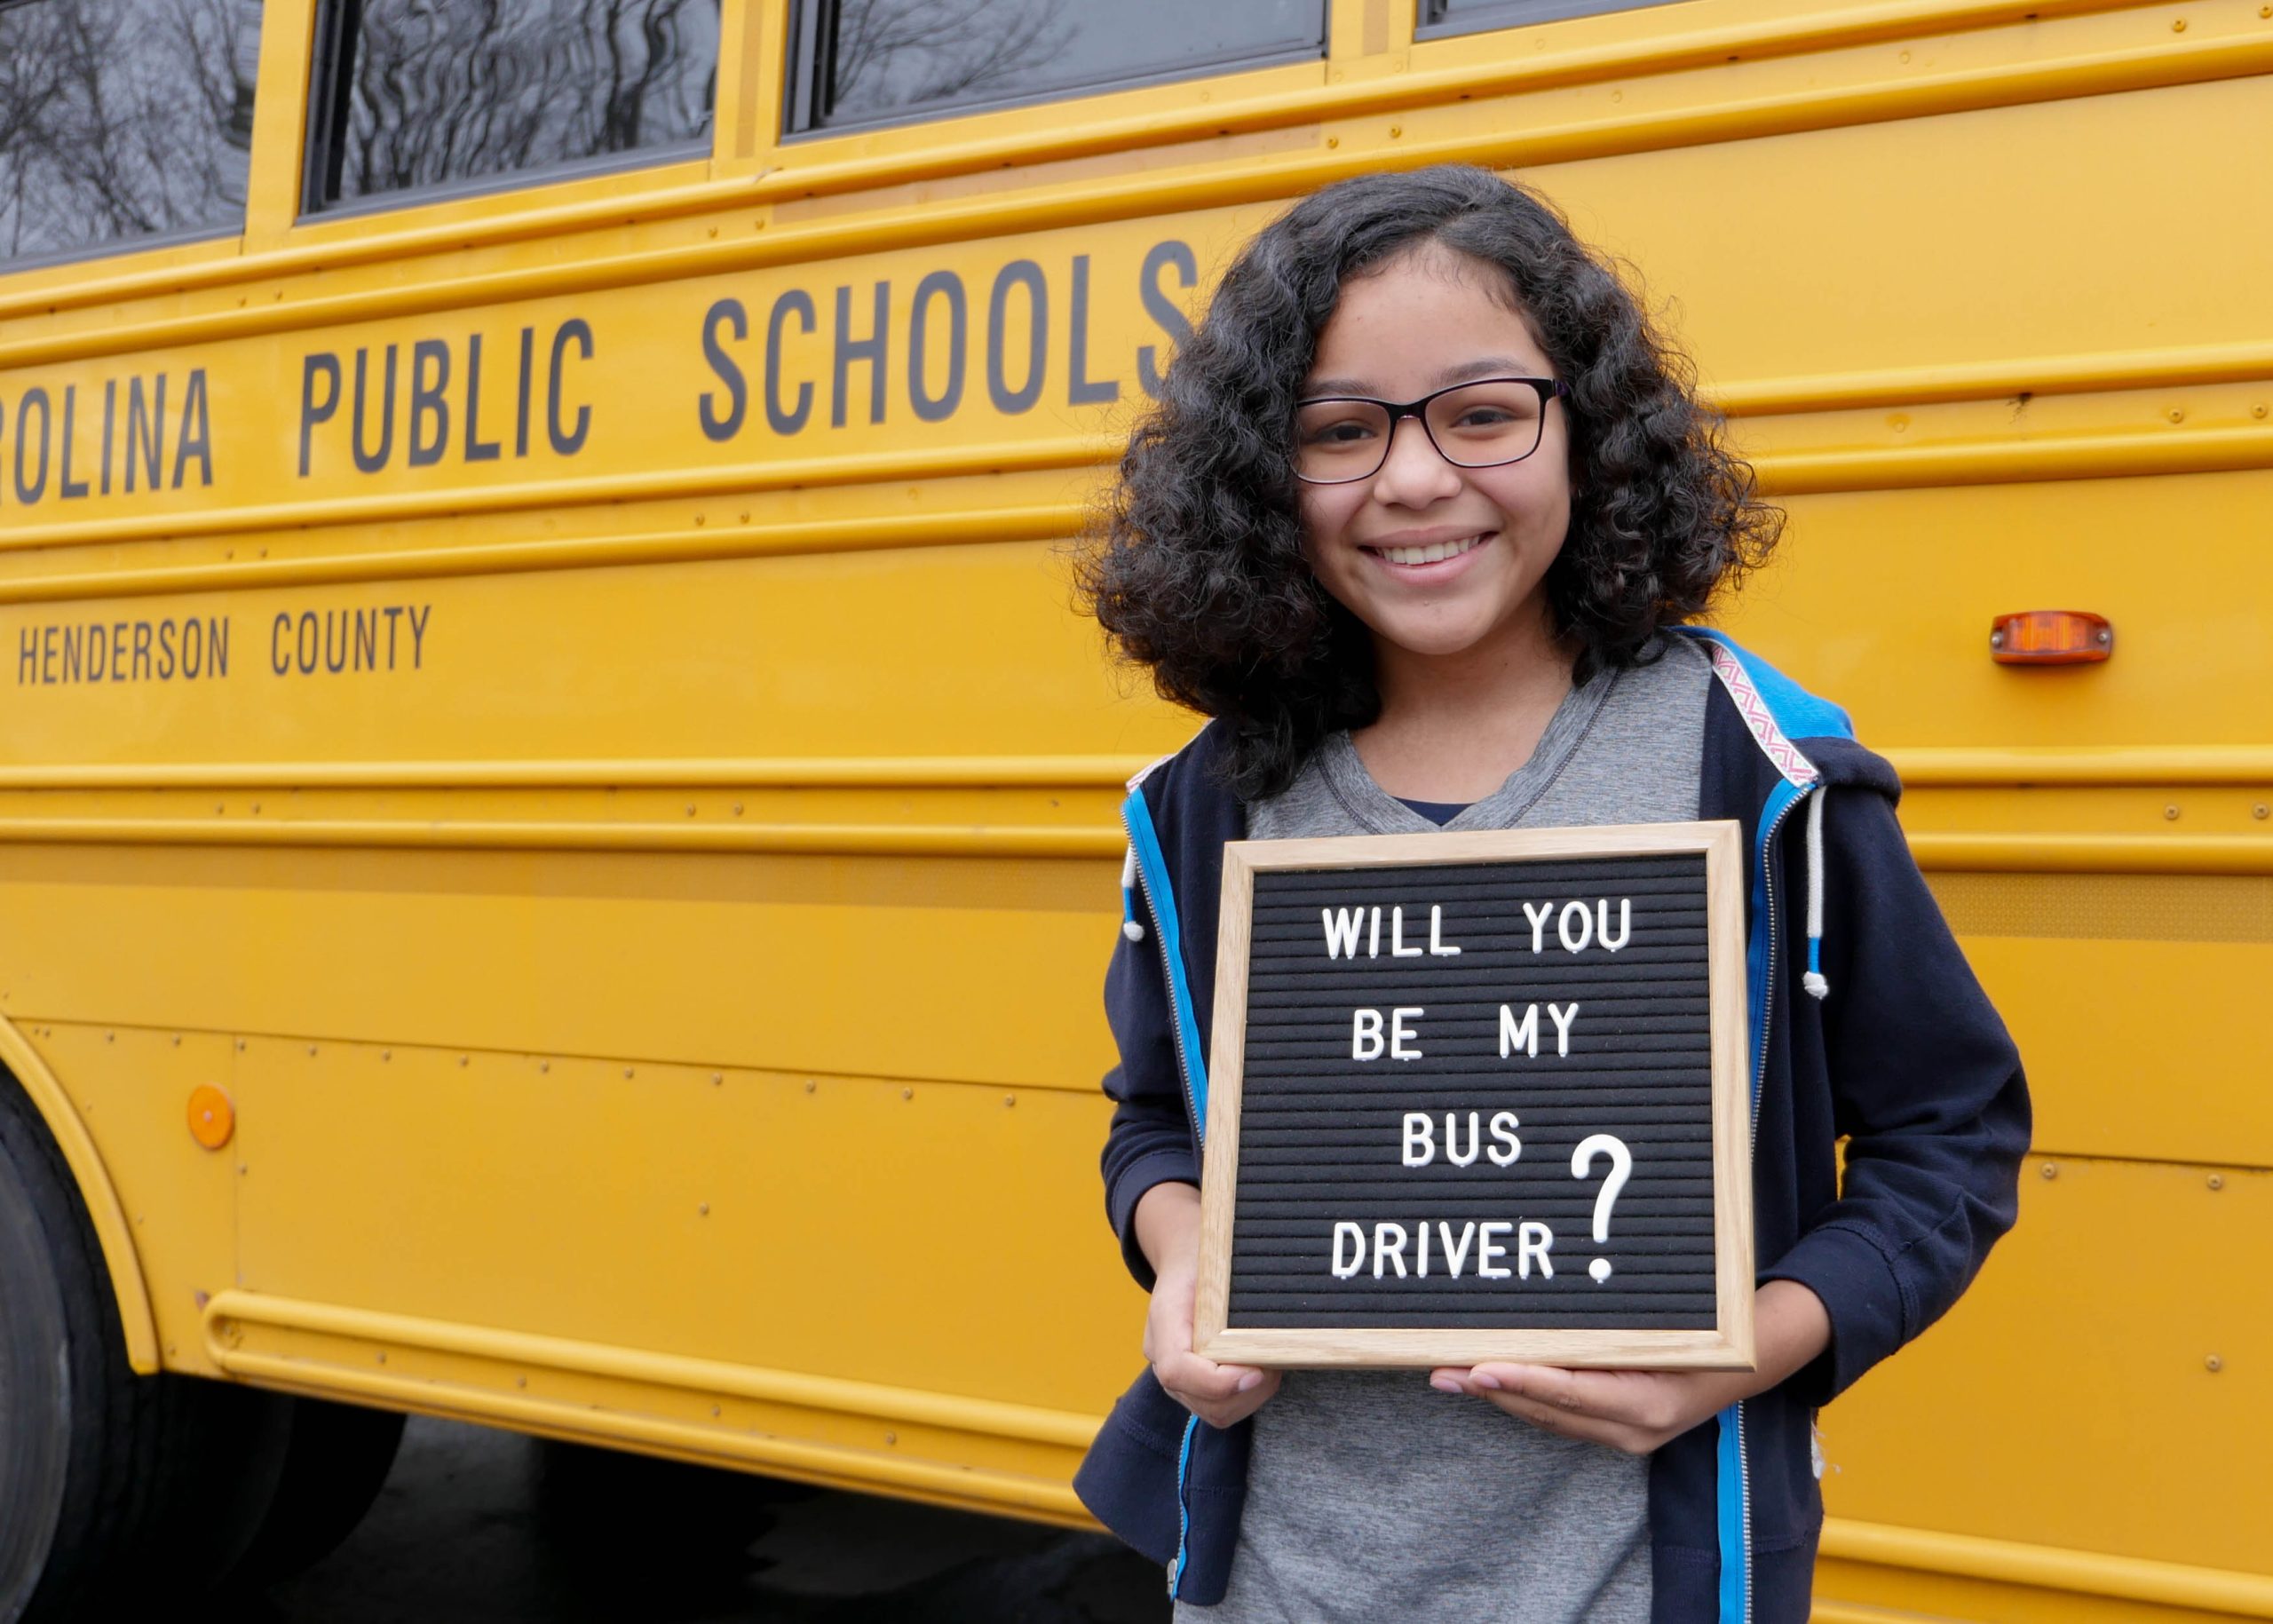 PUBLIC SCHOOLS
HENDERSON COUNTY
WILL YOU
BE MY
BUS
DRIVER?